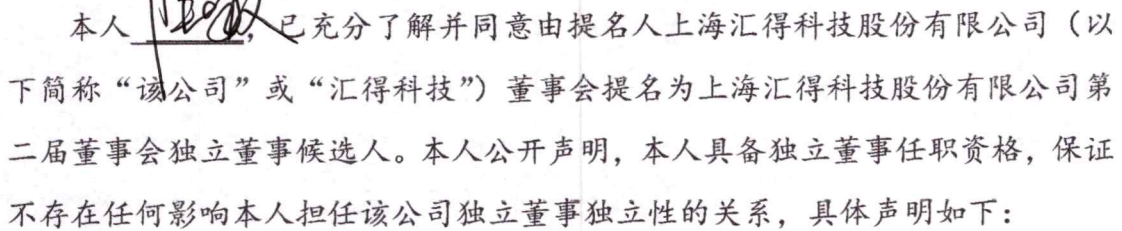 本人，已充分了解并同意由提名人上海汇得科技股份有限公司（以
下简称“该公司”或“汇得科技”）董事会提名为上海汇得科技股份有限公司第
二届董事会独立董事候选人。本人公开声明，本人具备独立董事任职资格，保证
不存在任何影响本人担任该公司独立董事独立性的关系，具体声明如下：